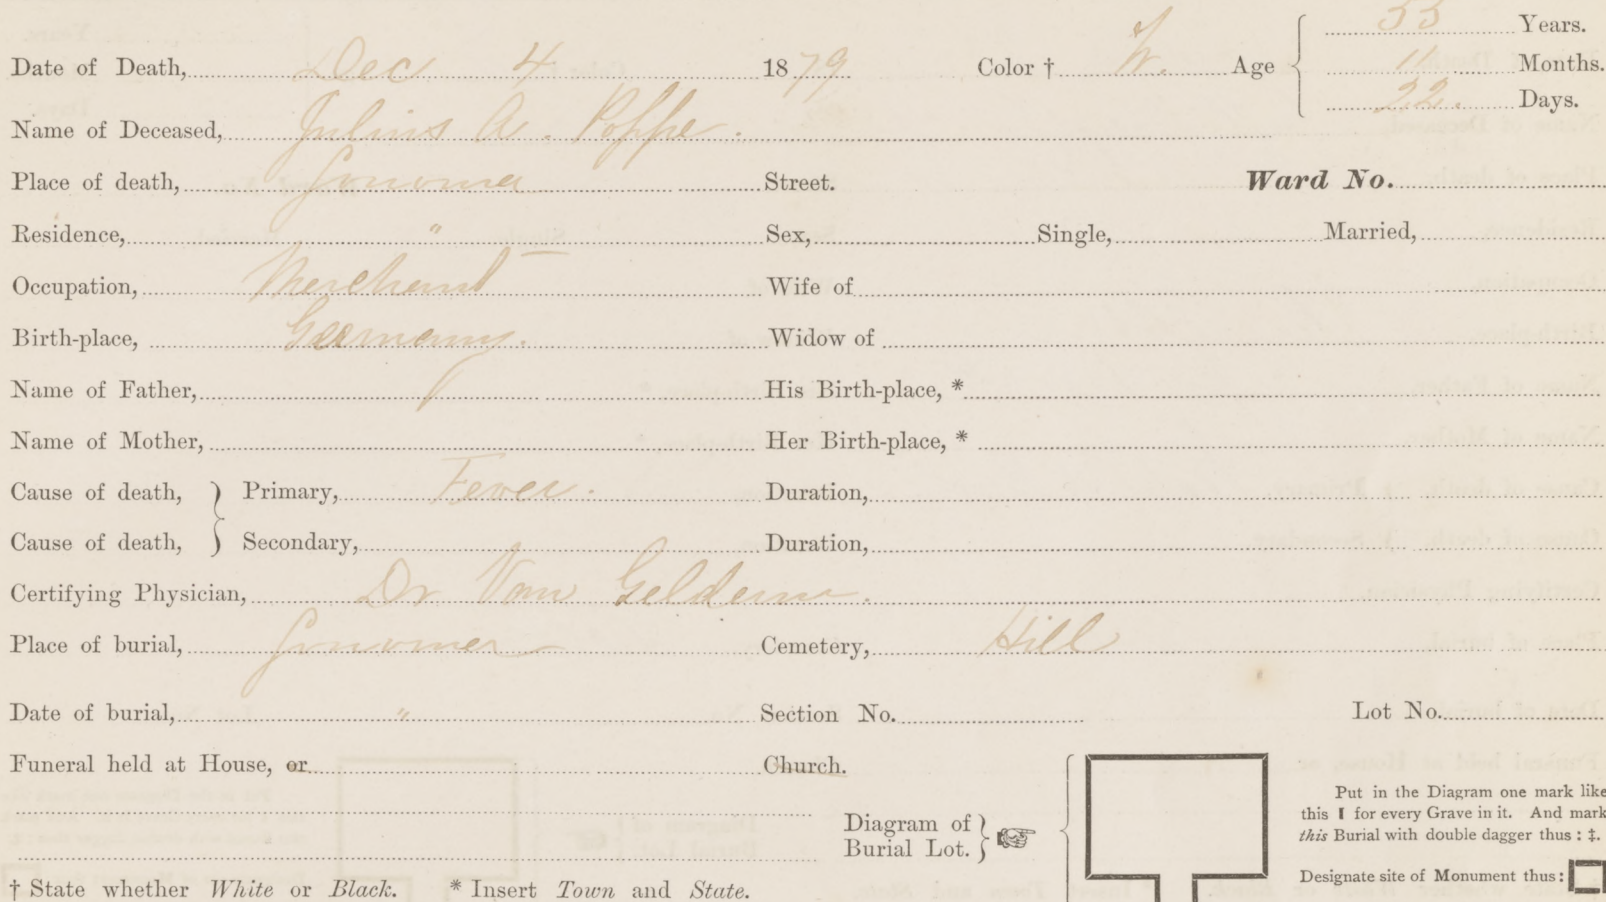 55 Years.
Date of Death, Dec 4 1879 Color † W. Age 11 Months.
22. Days.
Name of Deceased, Julius A. Poppe.
Place of death, Sonoma Street. Ward No.
Residence, " Sex, Single, Married,
Occupation, Merchant Wife of
Birth-place, Germany. Widow of
Name of Father, His Birth-place, *
Name of Mother, Her Birth-place, *
Cause of death, } Primary, Fever. Duration,
Cause of death, } Secondary, Duration,
Certifying Physician, Dr Van Geldern.
Place of burial, Sonoma Cemetery, Hill
Date of burial, " Section No. Lot No.
Funeral held at House, or Church.
Put in the Diagram one mark like
this ▮ for every Grave in it. And mark
Diagram of
Burial Lot.
this Burial with double dagger thus : ‡.
Designate site of Monument thus :
† State whether White or Black. * Insert Town and State.